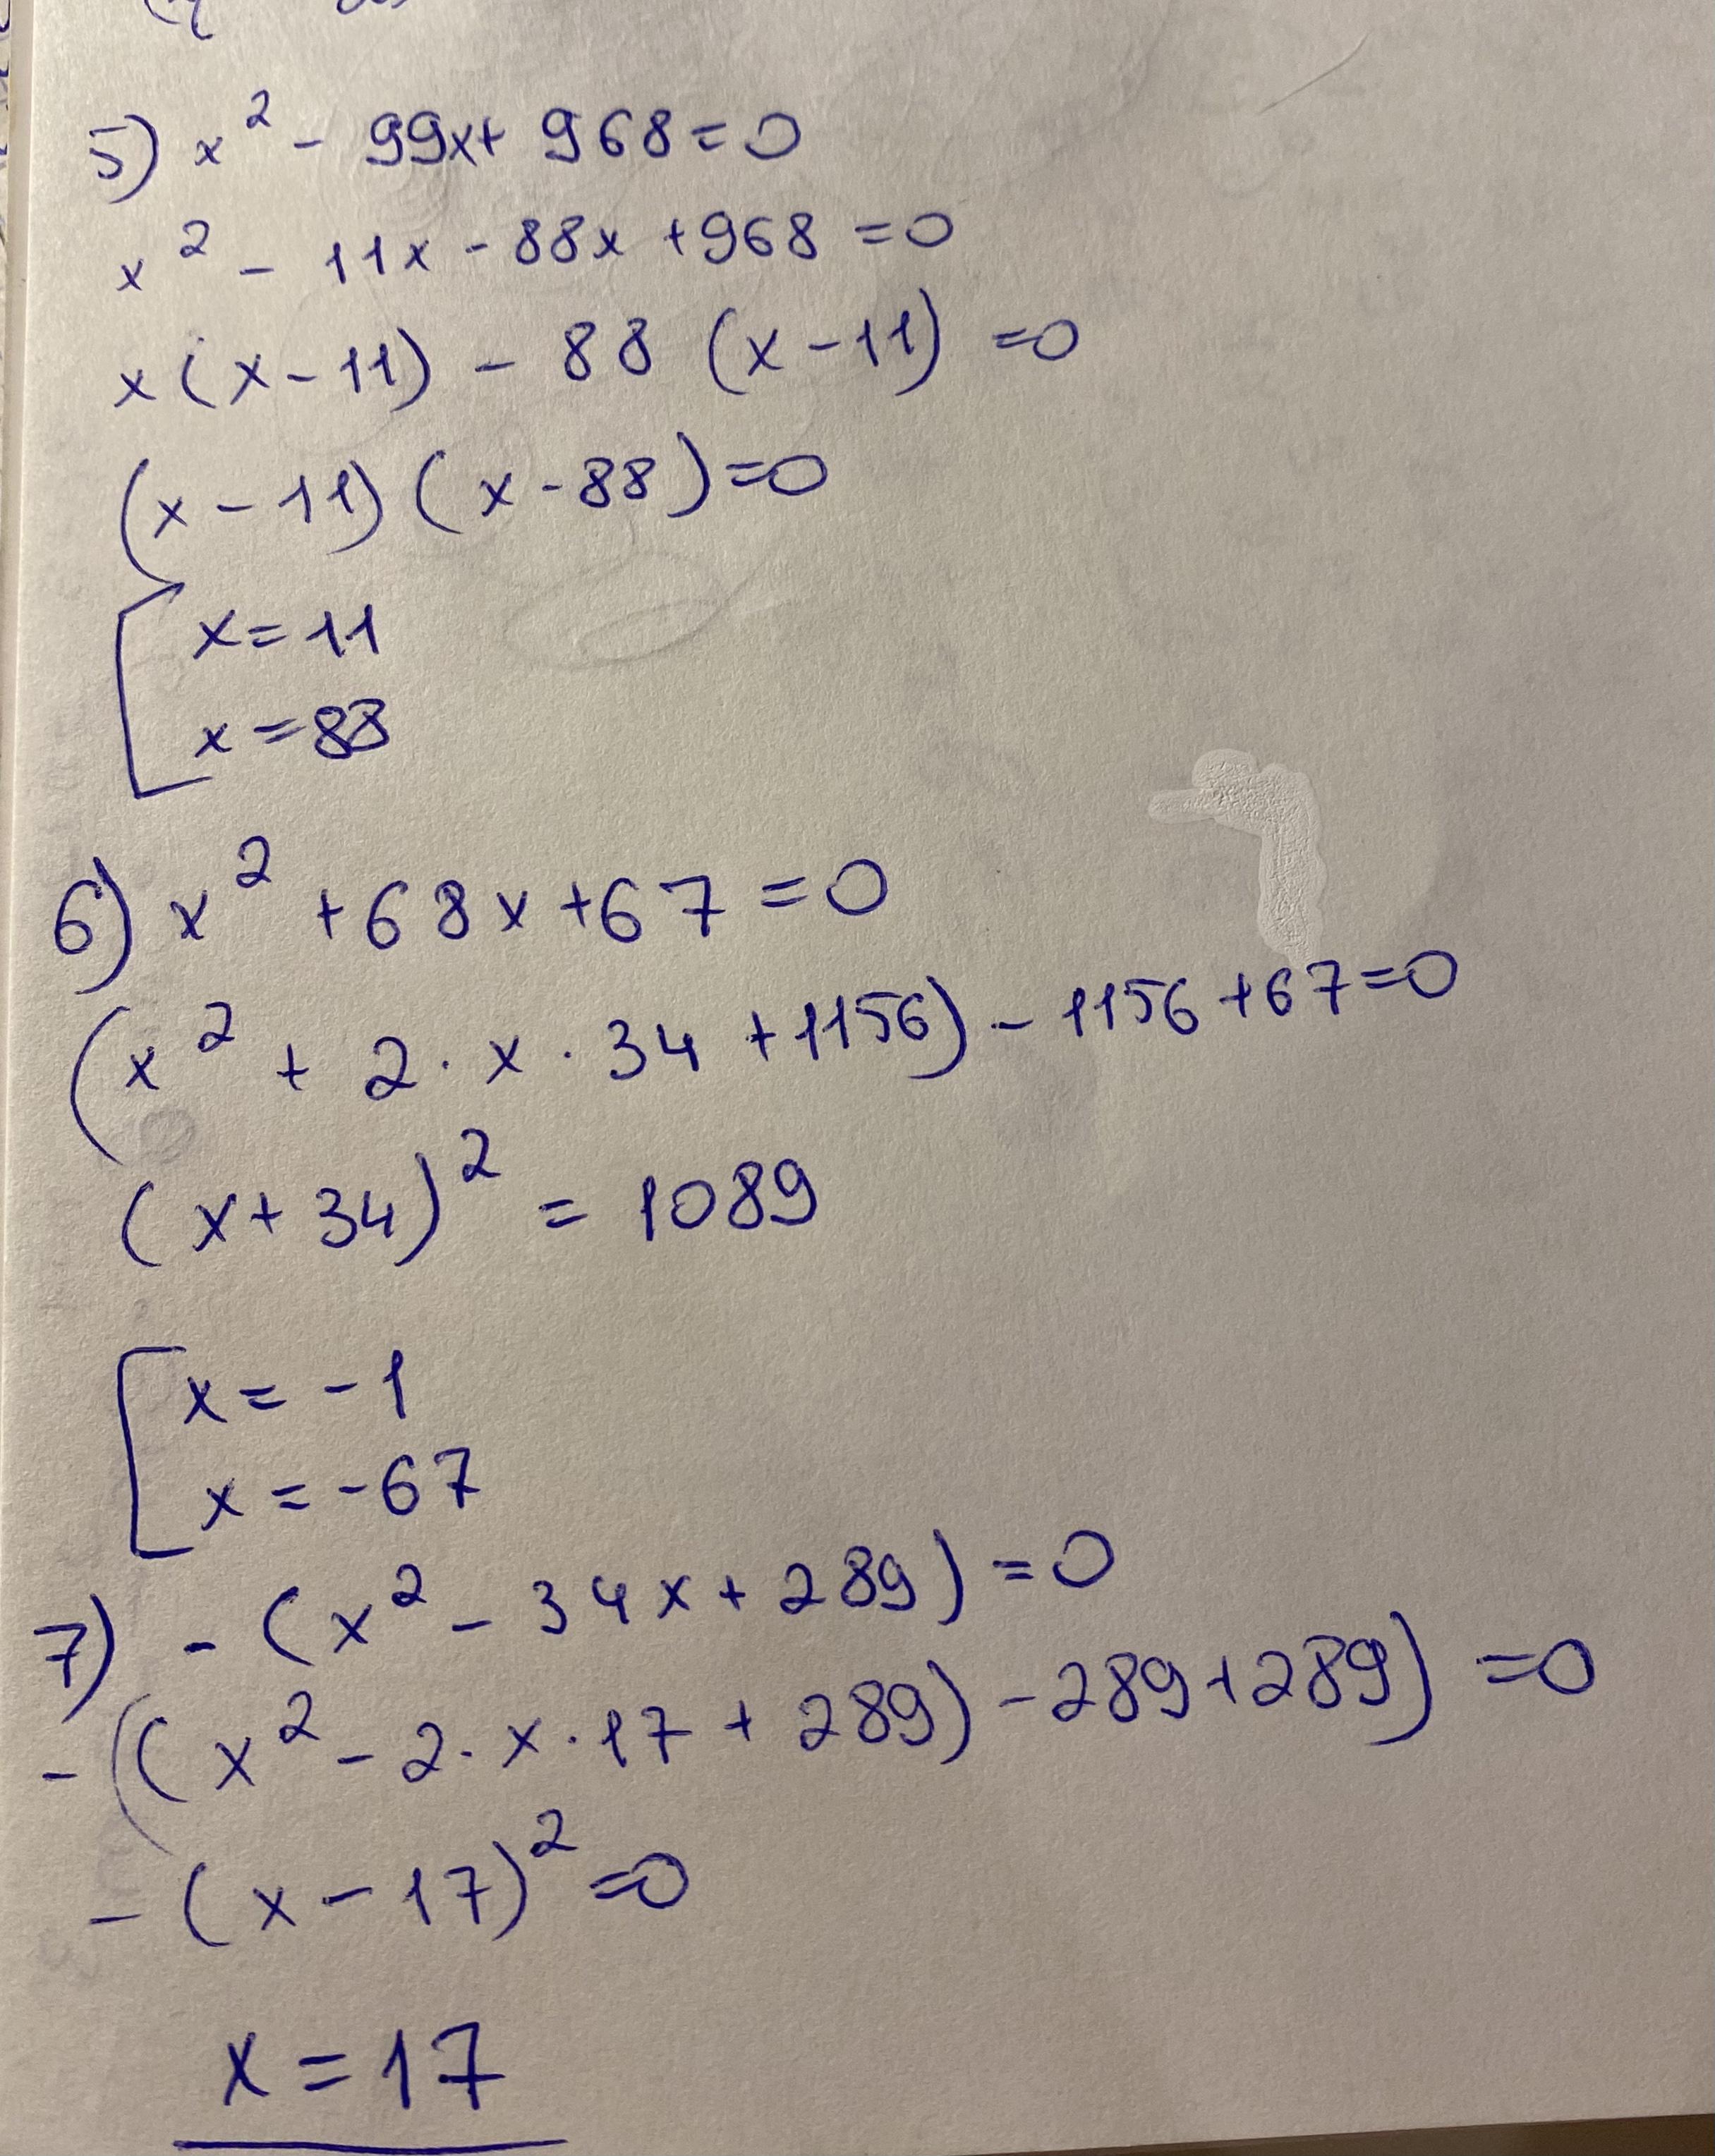 5) x² - 99x + 968 = 0
x² - 11x - 88x + 968 = 0
x(x - 11) - 88 (x - 11) = 0
(x - 11)(x - 88) = 0
[ x = 11
x = 88
6) x² + 68x + 67 = 0
(x² + 2 · x · 34 + 1156) - 1156 + 67 = 0
(x + 34)² = 1089
[ x = -1
x = -67
7) -(x² - 34x + 289) = 0
-((x² - 2 · x · 17 + 289) - 289 + 289) = 0
-(x - 17)² = 0
x = 17